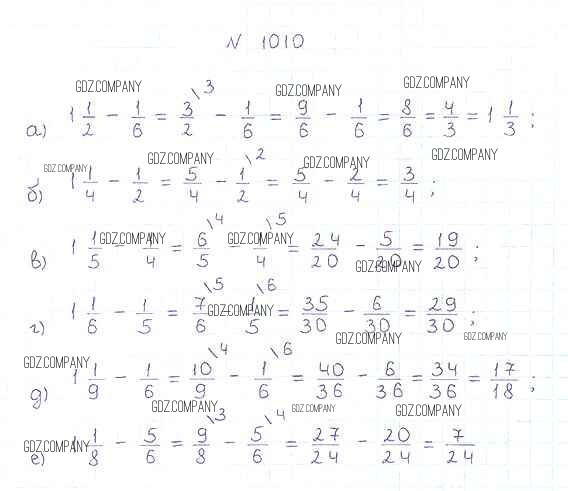 N 1010
GDZ.COMPANY GDZ.COMPANY GDZ.COMPANY
а) 1 1/2 − 1/6 = 3/2 \3 − 1/6 = 9/6 − 1/6 = 8/6 = 4/3 = 1 1/3 ;
GDZ.COMPANY GDZ.COMPANY GDZ.COMPANY GDZ.COMPANY
б) 1 1/4 − 1/2 = 5/4 − 1/2 \2 = 5/4 − 2/4 = 3/4 ;
GDZ.COMPANY GDZ.COMPANY
в) 1 1/5 − 1/4 = 6/5 \4 − 1/4 \5 = 24/20 − 5/20 = 19/20 ;
GDZ.COMPANY
г) 1 1/6 − 1/5 = 7/6 \5 − 1/5 \6 = 35/30 − 6/30 = 29/30 ;
GDZ.COMPANY GDZ.COMPANY GDZ.COMPANY
GDZ.COMPANY
д) 1 1/9 − 1/6 = 10/9 \4 − 1/6 \6 = 40/36 − 6/36 = 34/36 = 17/18 ;
GDZ.COMPANY GDZ.COMPANY GDZ.COMPANY
е) 1 1/8 − 5/6 = 9/8 \3 − 5/6 \4 = 27/24 − 20/24 = 7/24
GDZ.COMPANY